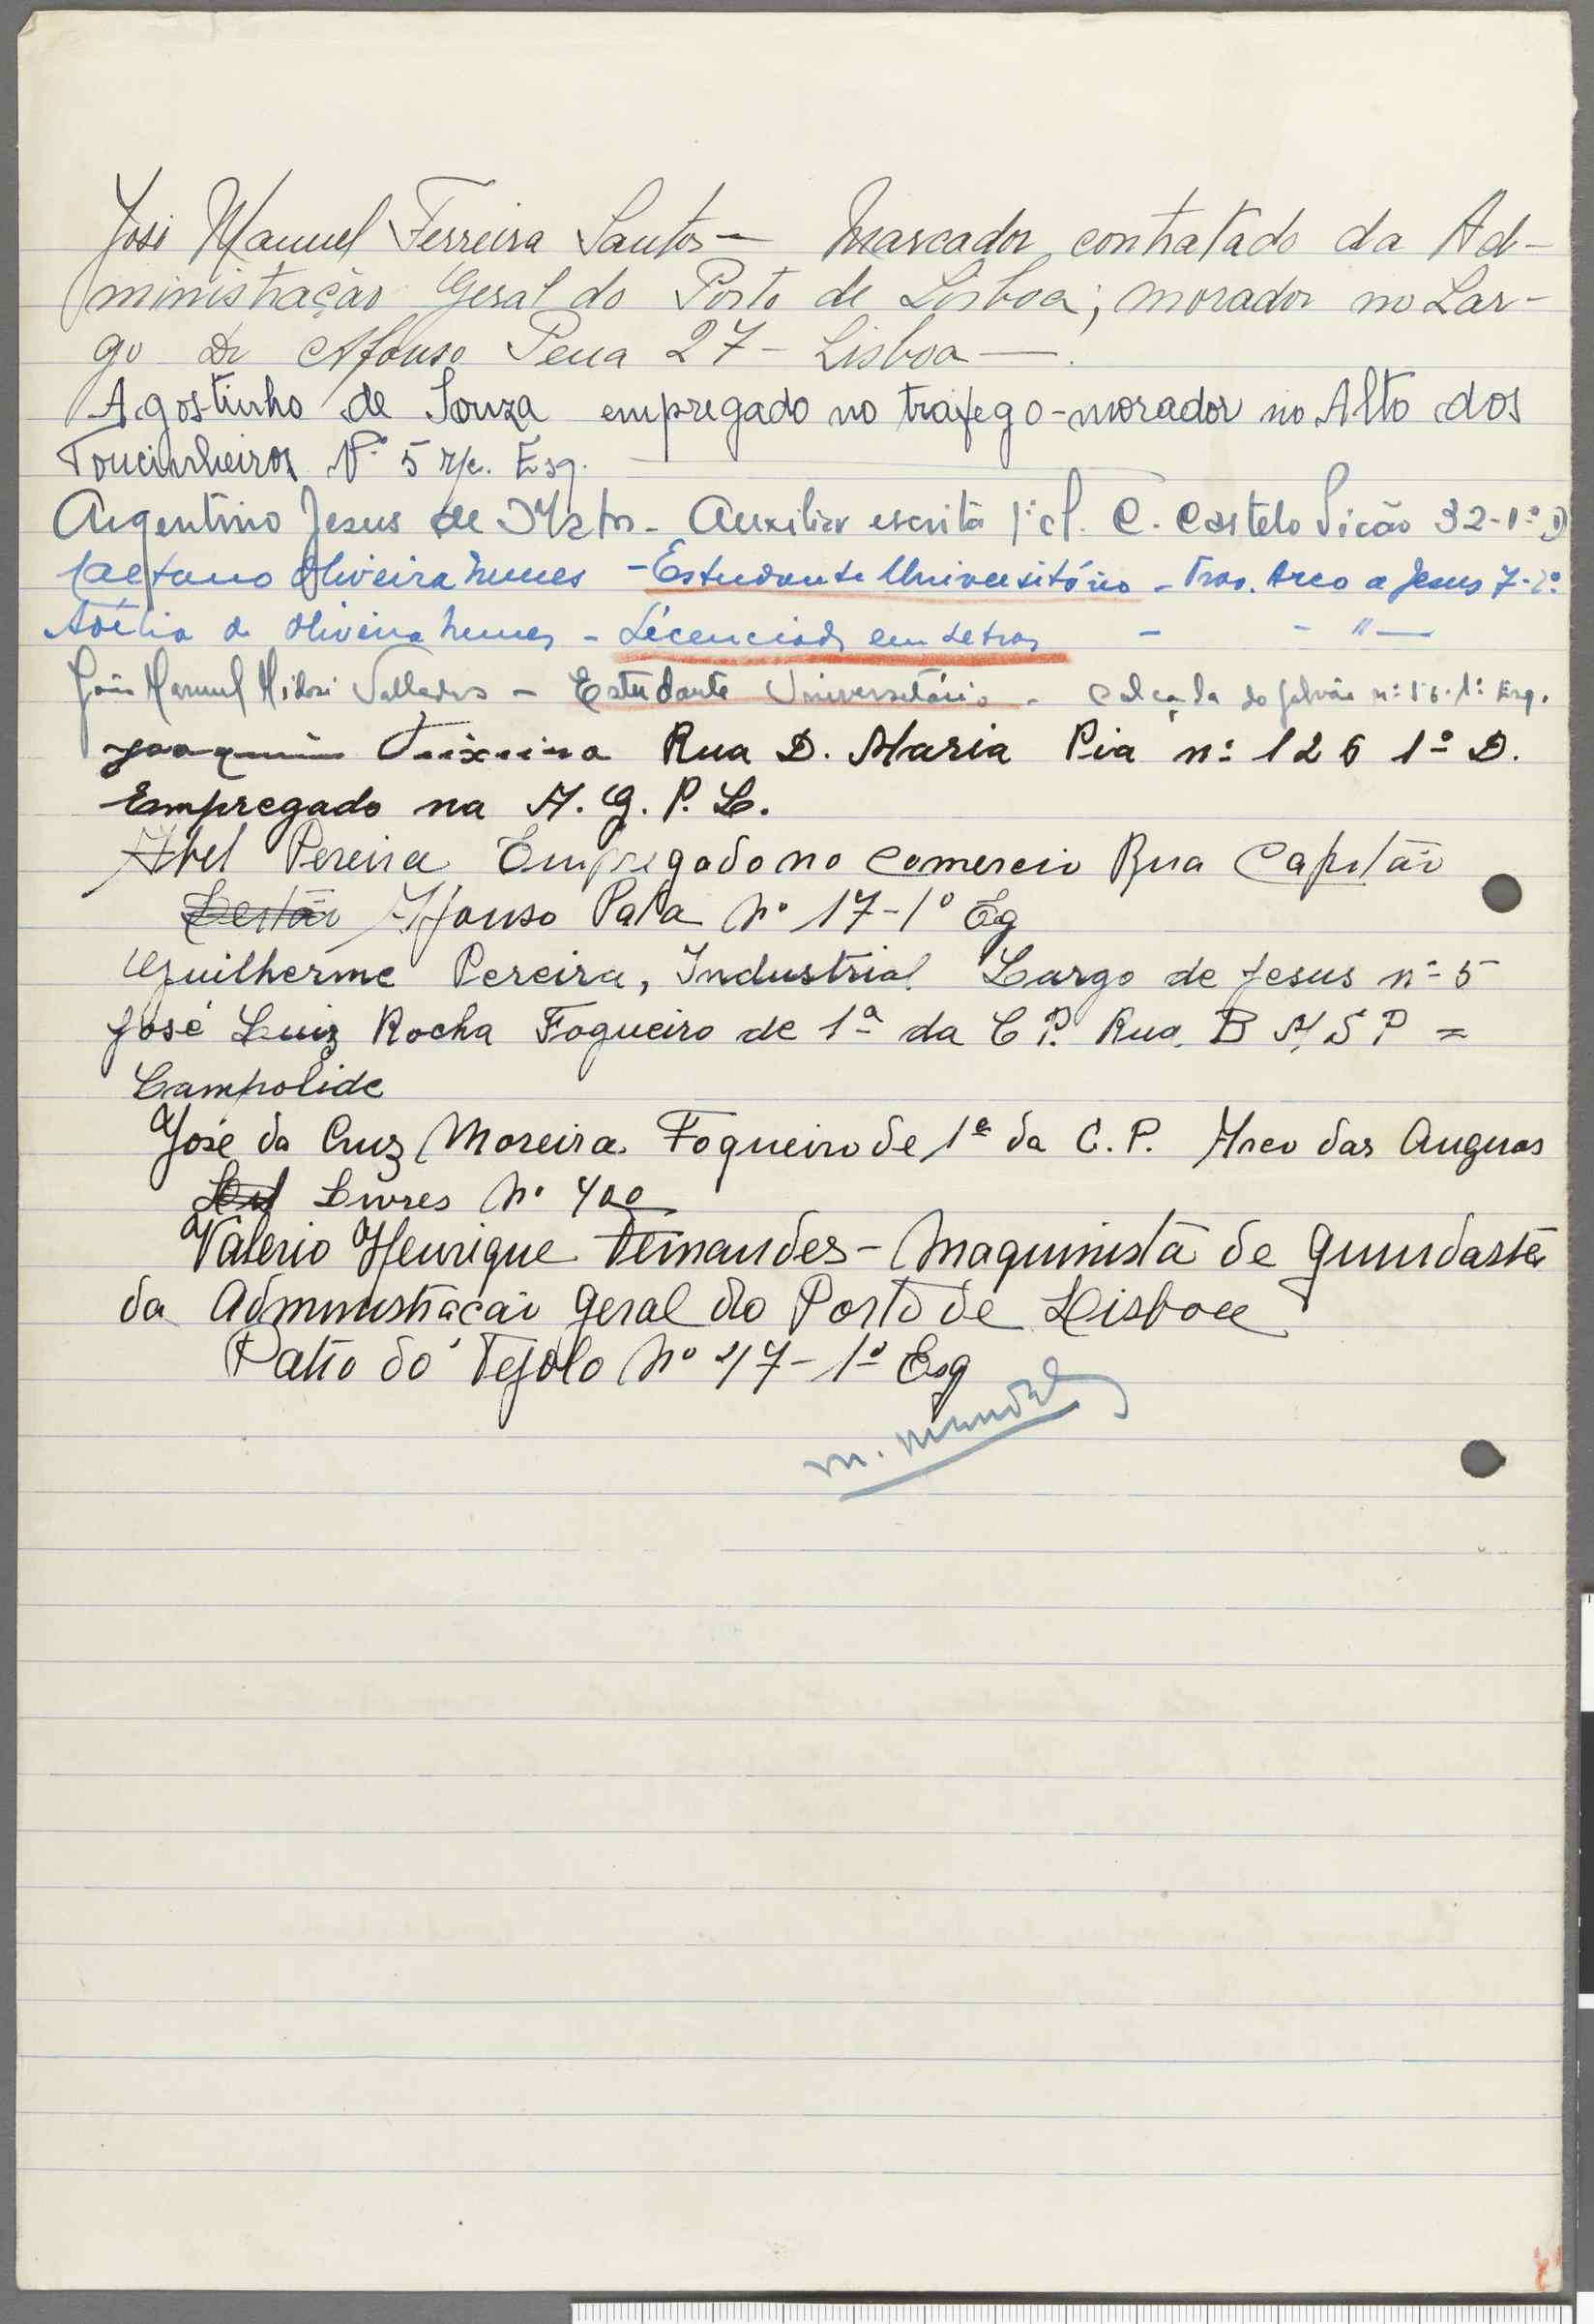 José Manuel Ferreira Santos — Marcador contratado da Ad-
ministração Geral do Porto de Lisboa; morador no Lar-
go Dr Afonso Pena 27 - Lisboa —.
Agostinho de Souza empregado no trafego - morador no Alto dos
Toucinheiros Nº 5 r/c. Esq. —
Argentino Jesus de Matos - Auxiliar escrita 1ª cl. C. Castelo Picão 32-1º D
Caetano Oliveira Nunes - Estudante Universitário - Trav. Arco a Jesus 7-2º
Adélia de Oliveira Nunes - Licenciada em Letras - - " —
João Manuel Midosi Valladas - Estudante Universitário - Calçada do Galvão nº 56-1º Esq.
Joaquim Teixeira Rua D. Maria Pia nº 126 1º D.
Empregado na A. G. P. L.
Abel Pereira Empregado no comercio Rua Capitão
Afonso Pala Nº 17-1º Eg
Guilherme Pereira, Industrial. Largo de Jesus nº 5
José Luiz Rocha Fogueiro de 1ª da C P. Rua. B A S P =
Campolide
José da Cruz Moreira Fogueiro de 1ª da C. P. Arco das Auguas
Livres Nº 400
Valerio Henrique Fernandes - Maquinista de guindaste
da Administração Geral do Porto de Lisboa
Patio do Tejolo Nº 47-1º Esq